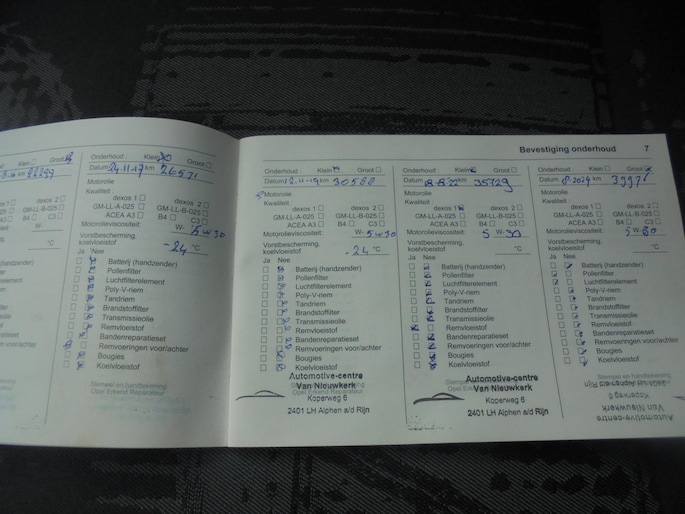 Bevestiging onderhoud 7
Onderhoud : Klein Groot
22299
Onderhoud : Klein Groot
Datum 24-11-17 km 26531
Motorolie
Kwaliteit :
dexos 1 dexos 2
GM-LL-A-025 GM-LL-B-025
ACEA A3 B4 C3
Motorolieviscositeit: 5 W- 30
Vorstbescherming,
koelvloeistof -24 °C
Ja Nee
Batterij (handzender)
Pollenfilter
Luchtfilterelement
Poly-V-riem
Tandriem
Brandstoffilter
Transmissieolie
Remvloeistof
Bandenreparatieset
Remvoeringen voor/achter
Bougies
Koelvloeistof
Stempel en handtekening
Opel Erkend Reparateur
Onderhoud : Klein Groot
Datum 12-11-19 km 30588
Motorolie
Kwaliteit :
dexos 1 dexos 2
GM-LL-A-025 GM-LL-B-025
ACEA A3 B4 C3
Motorolieviscositeit: 5 W- 30
Vorstbescherming,
koelvloeistof -24 °C
Ja Nee
Batterij (handzender)
Pollenfilter
Luchtfilterelement
Poly-V-riem
Tandriem
Brandstoffilter
Transmissieolie
Remvloeistof
Bandenreparatieset
Remvoeringen voor/achter
Bougies
Koelvloeistof
Automotive-centre
Van Nieuwkerk
Koperweg 6
2401 LH Alphen a/d Rijn
Onderhoud : Klein Groot
Datum 18-8-22 km 35729
Motorolie
Kwaliteit :
dexos 1 dexos 2
GM-LL-A-025 GM-LL-B-025
ACEA A3 B4 C3
Motorolieviscositeit: 5 W- 30
Vorstbescherming,
koelvloeistof °C
Ja Nee
Batterij (handzender)
Pollenfilter
Luchtfilterelement
Poly-V-riem
Tandriem
Brandstoffilter
Transmissieolie
Remvloeistof
Bandenreparatieset
Remvoeringen voor/achter
Bougies
Koelvloeistof
Automotive-centre
Van Nieuwkerk
Koperweg 6
2401 LH Alphen a/d Rijn
Onderhoud : Klein Groot
Datum 8-2024 km
Motorolie
Kwaliteit :
dexos 1 dexos 2
GM-LL-A-025 GM-LL-B-025
ACEA A3 B4 C3
Motorolieviscositeit: 5 W- 30
Vorstbescherming,
koelvloeistof °C
Ja Nee
Batterij (handzender)
Pollenfilter
Luchtfilterelement
Poly-V-riem
Tandriem
Brandstoffilter
Transmissieolie
Remvloeistof
Bandenreparatieset
Remvoeringen voor/achter
Bougies
Koelvloeistof
2401 LH Alphen a/d Rijn
Koperweg 6
Van Nieuwkerk
Automotive-centre